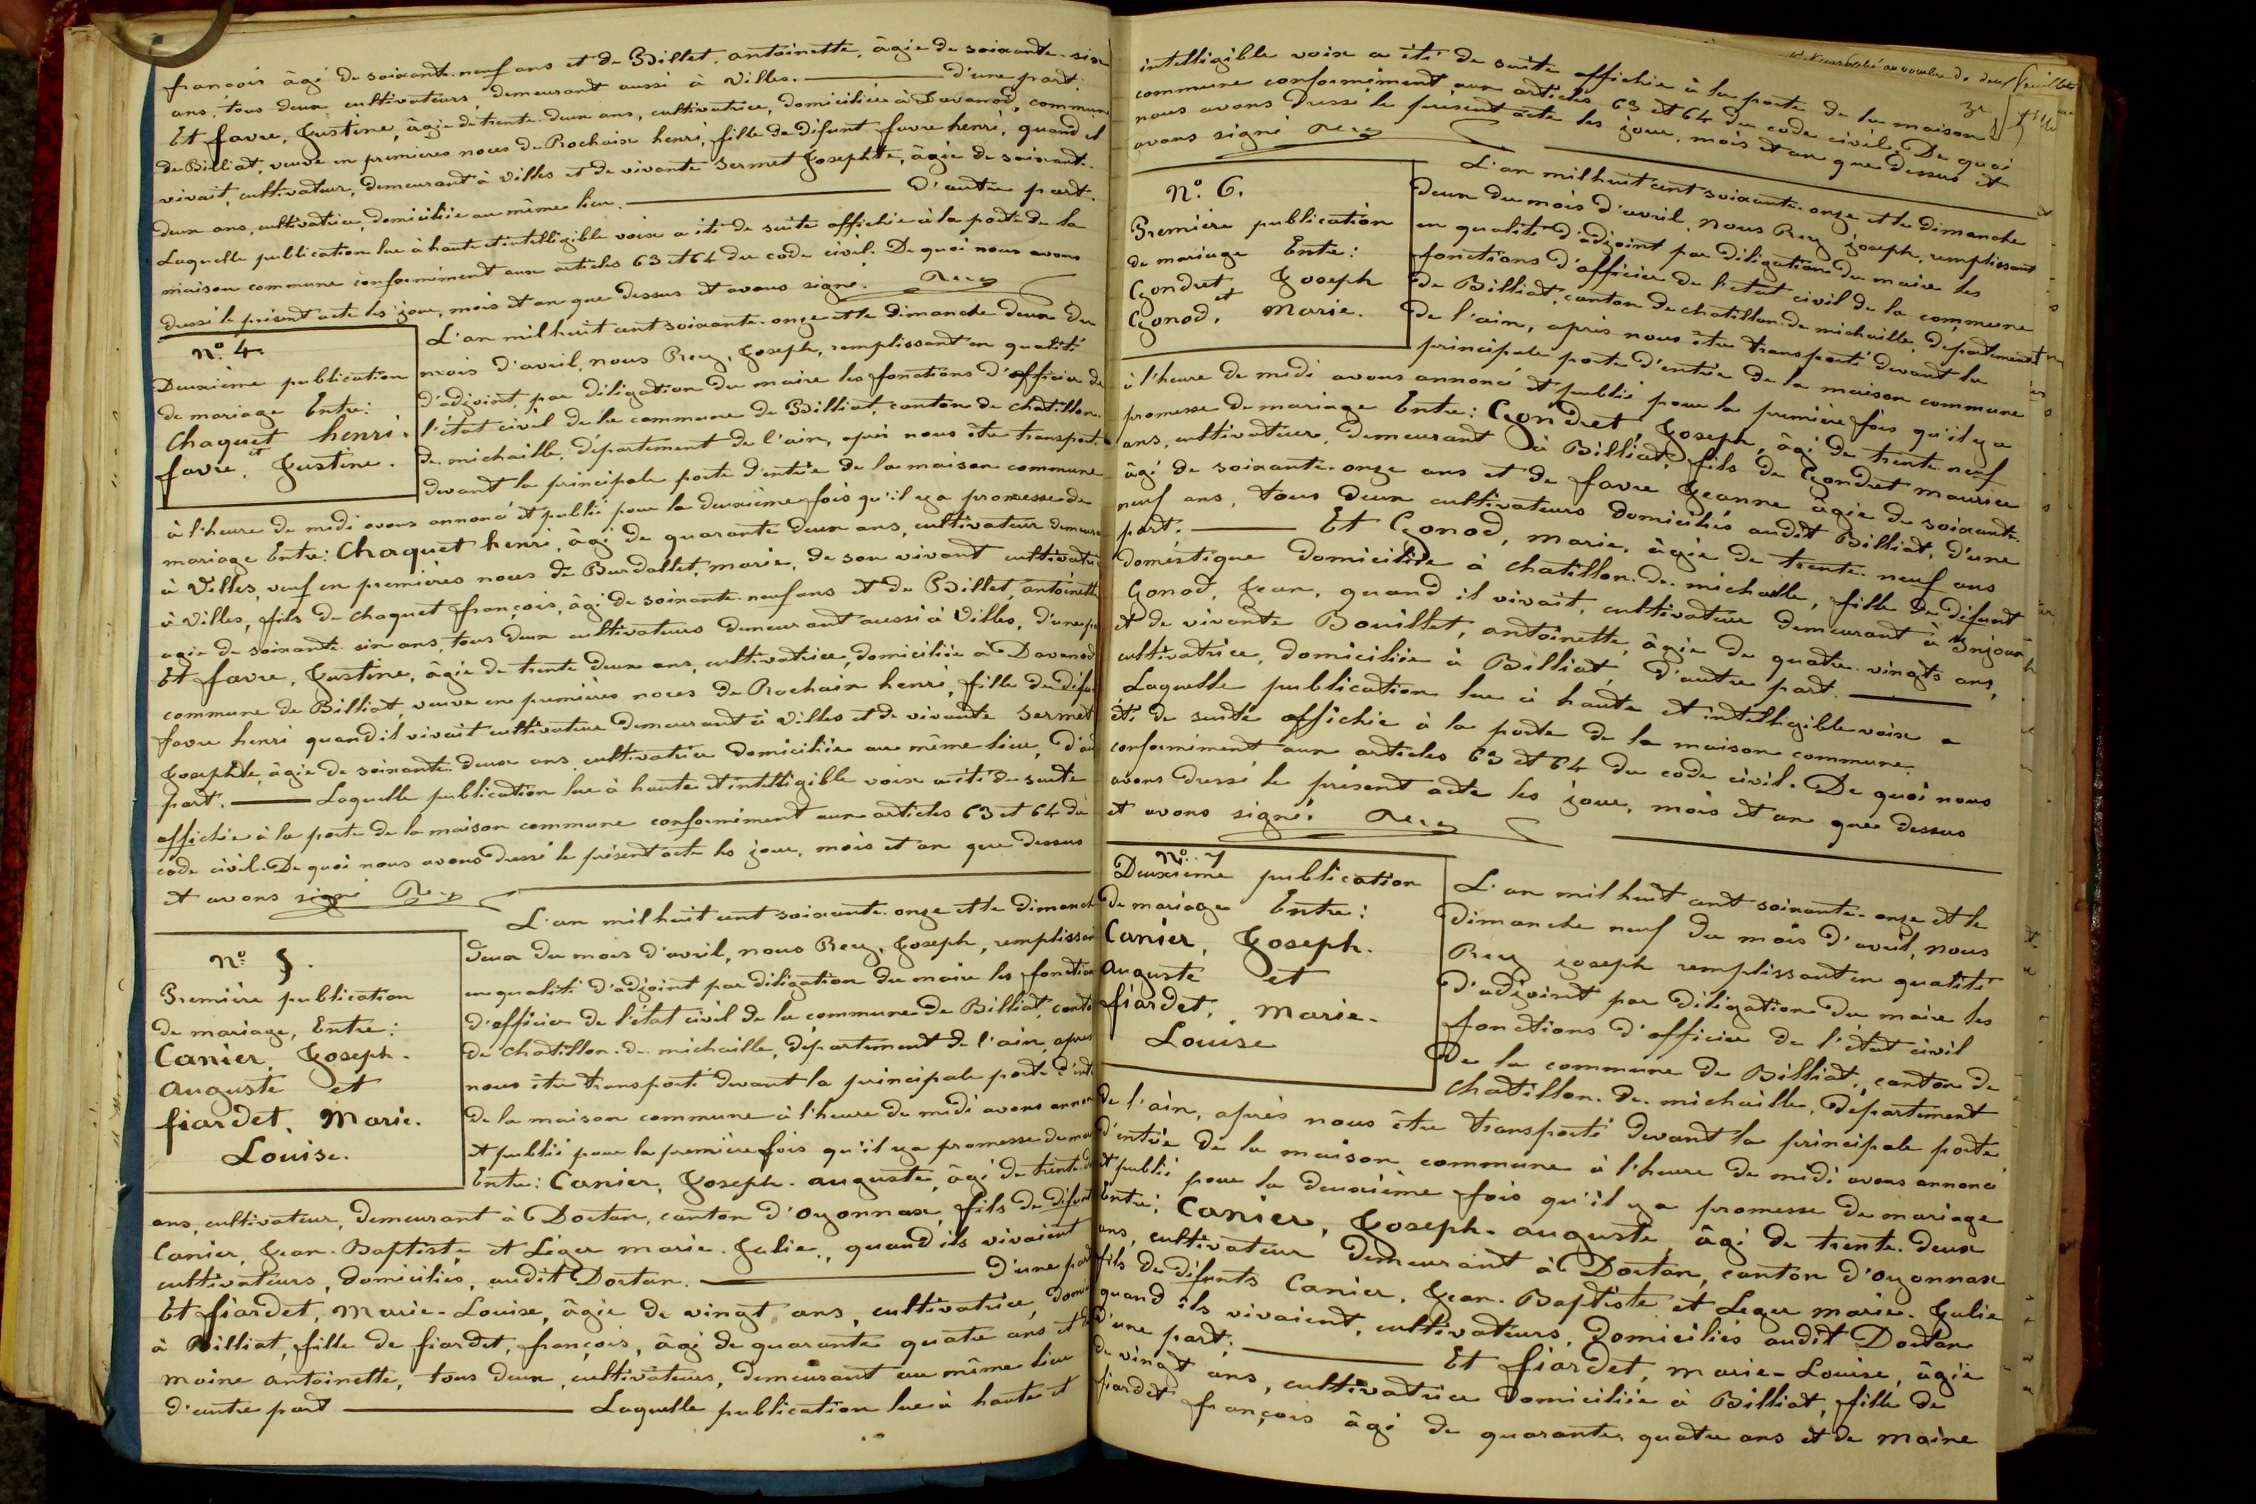 françois âgé de soixante-neuf ans et de Billet, antoinette, âgée de soixante-six
ans, tous deux cultivateurs, demeurant aussi à Villes. d'une part.
Et favre, Justine, âgée de trente-deux ans, cultivatrice, domiciliée à Davanod, commune
de Billiat, veuve en premières noces de Rochaix henri, fille de défunt favre henri, quand il
vivait, cultivateur, demeurant à Villes et de vivante Sermet Josephte, âgée de soixante-
deux ans, cultivatrice, domiciliée au même lieu. d'autre part.
Laquelle publication lue à haute et intelligible voix a été de suite affichée à la porte de la
maison commune conformément aux articles 63 et 64 du code civil. De quoi nous avons
dressé le présent acte les jour, mois et an que dessus et avons signé. Rey
No. 4.
Deuxième publication
de mariage Entre:
Chaquet henri.
et
favre, Justine.
L'an mil huit cent soixante-onze et le dimanche deux du
mois d'avril, nous Rey, Joseph, remplissant en qualité
d'adjoint, par délégation du maire les fonctions d'officier de
l'état civil de la commune de Billiat, canton de chatillon-
de-michaille, département de l'ain, après nous être transporté
devant la principale porte d'entrée de la maison commune
à l'heure de midi avons annoncé et publié pour la deuxième fois qu'il y a promesse de
mariage Entre: Chaquet henri, âgé de quarante-deux ans, cultivateur demeurant
à Villes, veuf en premières noces de Burdallet, marie, de son vivant cultivatrice
à Villes, fils de chaquet françois, âgé de soixante-neuf ans et de Billet, antoinette
agée de soixante-six ans, tous deux cultivateurs demeurant aussi à Villes, d'une part
Et favre, Justine, âgée de trente-deux ans, cultivatrice, domiciliée à Davanod
commune de Billiat, veuve en premières noces de Rochaix henri, fille de défunt
favre henri quand il vivait cultivateur demeurant à Villes et de vivante Sermet
Josephte, âgée de soixante-deux ans cultivatrice domiciliée au même lieu, d'autre
part. Laquelle publication lue à haute et intelligible voix a été de suite
affichée à la porte de la maison commune conformément aux articles 63 et 64 du
code civil. De quoi nous avons dressé le présent acte les jour, mois et an que dessus
et avons signé Rey
No. 5.
Première publication
de mariage, Entre:
Canier, Joseph-
auguste et
fiardet, Marie-
Louise.
L'an mil huit cent soixante-onze et le dimanche
deux du mois d'avril, nous Rey, Joseph, remplissant
en qualité d'adjoint par délégation du maire les fonctions
d'officier de l'état civil de la commune de Billiat, canton
de chatillon-de-michaille, département de l'ain, après
nous être transporté devant la principale porte d'entrée
de la maison commune à l'heure de midi avons annoncé
et publié pour la première fois qu'il y a promesse de mariage
Entre: Canier, Joseph-auguste, âgé de trente-deux
ans, cultivateur, demeurant à Dortan, canton d'oyonnax, fils de défunts
Canier, Jean-Baptiste et Léger marie-Julie, quand ils vivaient
cultivateurs, domiciliés, audit Dortan. d'une part
Et fiardet, Marie-Louise, âgée de vingt ans, cultivatrice, domiciliée
à Billiat, fille de fiardet, françois, âgé de quarante quatre ans et de
moine antoinette, tous deux, cultivateurs, demeurant au même lieu
d'autre part Laquelle publication lue à haute et
intelligible voix a été de suite affichée à la porte de la maison
commune conformément aux articles 63 et 64 du code civil. De quoi
nous avons dressé le présent acte les jour, mois et an que dessus et
avons signé Rey
No. 6.
Première publication
de mariage Entre:
Gondret Joseph
et
Gonod, Marie.
L'an mil huit cent soixante-onze et le dimanche
deux du mois d'avril, nous Rey joseph, remplissant
en qualité d'adjoint par délégation du maire les
fonctions d'officier de l'état civil de la commune
de Billiat, canton de chatillon-de-michaille, département
de l'ain, après nous être transporté devant la
principale porte d'entrée de la maison commune
à l'heure de midi avons annoncé et publié pour la première fois qu'il y a
promesse de mariage Entre: Gondret Joseph, âgé de trente-neuf
ans, cultivateur, demeurant à Billiat, fils de Gondret maurice
âgé de soixante-onze ans et de favre Jeanne âgée de soixante-
neuf ans, tous deux cultivateurs domiciliés audit Billiat, d'une
part. Et Gonod, marie, âgée de trente-neuf ans
domestique domiciliée à chatillon-de-michaille, fille de défunt
Gonod, Jean, quand il vivait, cultivateur demeurant à Injoux
et de vivante Bouillet, antoinette, âgée de quatre-vingts ans,
cultivatrice, domiciliée à Billiat, d'autre part.
Laquelle publication lue à haute et intelligible voix a
été de suite affichée à la porte de la maison commune
conformément aux articles 63 et 64 du code civil. De quoi nous
avons dressé le présent acte les jour, mois et an que dessus
et avons signé. Rey
No. 7
Deuxième publication
de mariage Entre:
Canier, Joseph-
auguste et
fiardet, Marie-
Louise
L'an mil huit cent soixante-onze et le
dimanche neuf du mois d'avril, nous
Rey joseph remplissant en qualité
d'adjoint par délégation du maire les
fonctions d'officier de l'état civil
de la commune de Billiat, canton de
chatillon-de-michaille, département
de l'ain, après nous être transporté devant la principale porte
d'entrée de la maison commune à l'heure de midi avons annoncé
et publié pour la deuxième fois qu'il y a promesse de mariage
Entre: Canier, Joseph-auguste, âgé de trente-deux
ans, cultivateur demeurant à Dortan, canton d'oyonnax
fils de défunts Canier, Jean-Baptiste et Leger marie-Julie
quand ils vivaient, cultivateurs, domiciliés audit Dortan
d'une part. Et fiardet, marie-Louise, âgée
de vingt ans, cultivatrice domiciliée à Billiat, fille de
fiardet françois âgé de quarante quatre ans et de moine